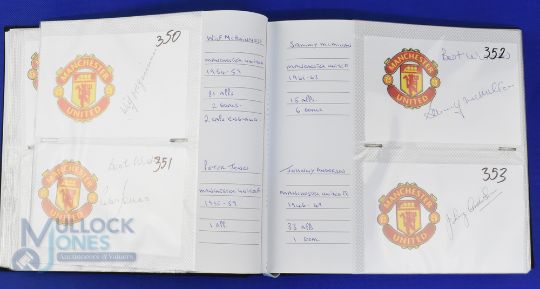 350
MANCHESTER
UNITED
WILF McGUINNESS
MANCHESTER UNITED
1954-59
81 APPS
2 GOALS
2 CAPS ENGLAND
351
Best Wishes
MANCHESTER
UNITED
PETER JONES
MANCHESTER UNITED
1955-59
1 APP
SAMMY McMILLAN
MANCHESTER UNITED
1961-63
15 APPS
6 GOALS
JOHNNY ANDERSON
MANCHESTER UNITED
1946-49
33 APPS
1 GOAL
352
Best Wishes
Sammy McMillan
MANCHESTER
UNITED
353
MANCHESTER
UNITED
MULLOCK
JONES
Auctioneers & Valuers